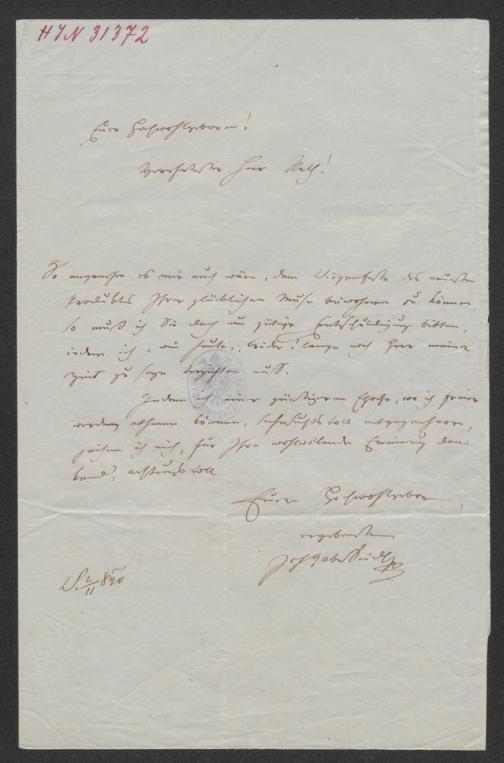 HIN 31372
Euer Hochwohlgeboren!
Verehrtester Herr Rath!
So angenehm es mir auch wäre, dem Wiegenfeste des neuesten
Produktes Ihrer glücklichen Muse beiwohnen zu können,
so muß ich Sie doch um gütige Entschuldigung bitten,
indem ich, wie heute, leider! lange noch Herr meiner
Zeit zu seyn verzichten muß.
Indem ich einer günstigeren Epoche, wo ich freier
werde athmen können, sehnsuchtsvoll entgegenharre,
zeichne ich mich, für Ihre wohlwollende Erinnerung dan-
kend, achtungsvoll
Euer Hochwohlgeboren
ergebenster
Joh Gabr Seidl
2/11 840